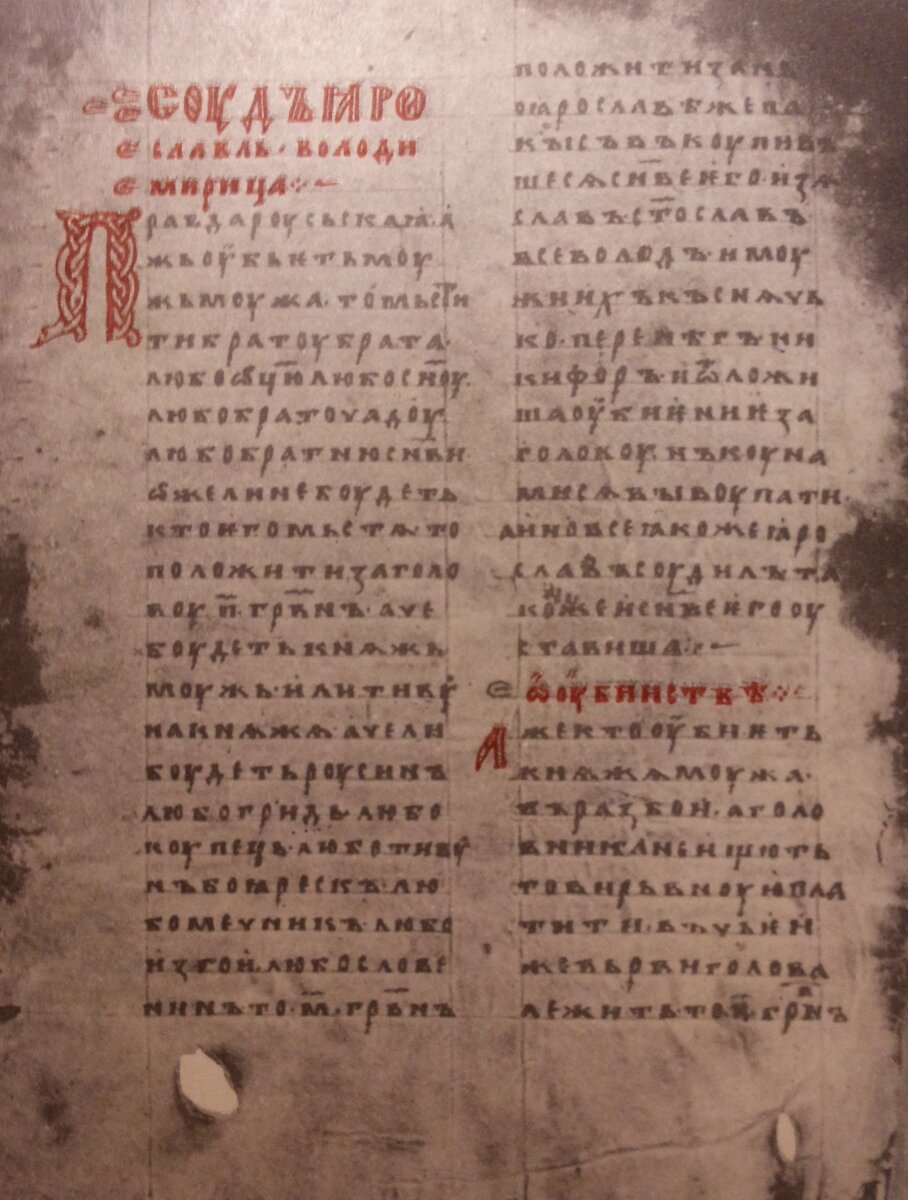 СОУДЪ ꙖРО
СЛАВЛЬ · ВОЛОДИ
МИРИЦА
Правда роусьскаꙗ · а
жь оубьѥть моу
жь моужа · то мьсти
ти братоу брата ·
любо ѿцю любо сн҃оу ·
любо братоучадоу
любо братню сн҃ви
ѡже ли не боудеть
кто ѥго мьстѧ то
положити за голо
воу · п҃ · грв҃нъ · аче
боудеть кнѧжь
моужь · или тивоу
на кнѧжѧ · аче ли
боудеть роусинъ
любо гридь · любо
коупець · любо тивоу
нъ боꙗрескъ · лю
бо мечникъ · любо
изгои · любо слове
нинъ то · м҃ · грв҃нъ
положити за нь
по ꙗрославѣ же па
кы съвъкоупивъ
шесѧ сн҃ве ѥго · изѧ
славъ · ст҃ославъ ·
всеволодъ · и моу
жи ихъ · къснѧчь
ко · перенѣгъ · ни
кифоръ · и ѿложи
ша оубиѥниѥ за
головоу · нъ коуна
ми сѧ выкоупати ·
а ино все ꙗкоже ꙗро
славъ соудилъ · та
коже и сн҃ве ѥго оу
ставиша
ѡ оубииствѣ
Аже кто оубиѥть
кнѧжѧ моужа ·
въ разбои · а голо
вника не ищють
то вирьвноую пла
тити · въ чьѥи
же вьрви голова
лежить · то · п҃ · грв҃нъ